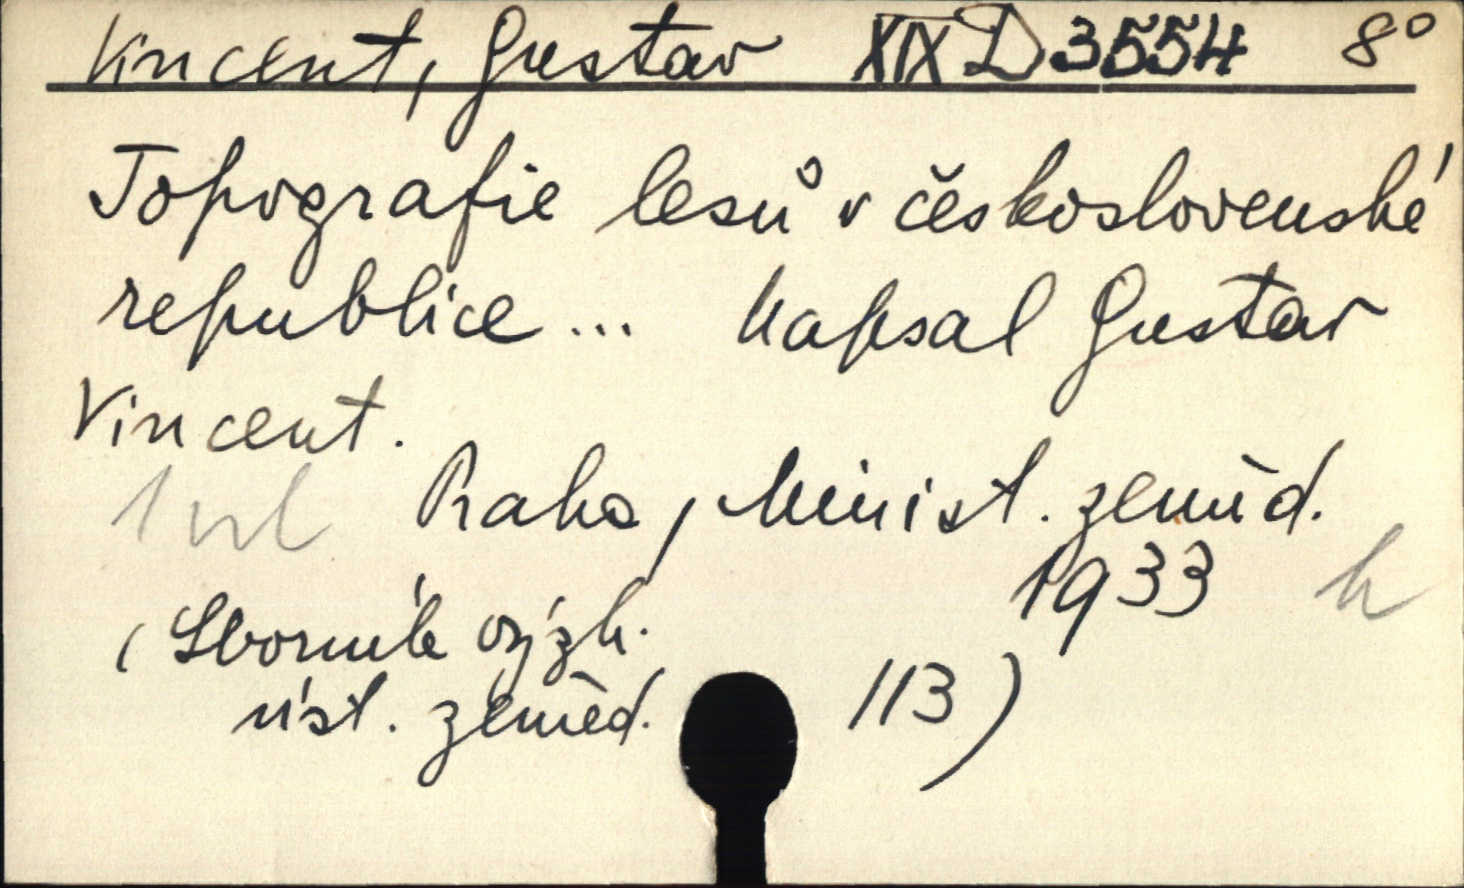 Vincent, Gustav XIX D 3554 8°
Topografie lesů v československé
republice ... Napsal Gustav
Vincent.
Praha, Minist. zeměd.
1933
(Sborník výzk.
úst. zeměd. 113)